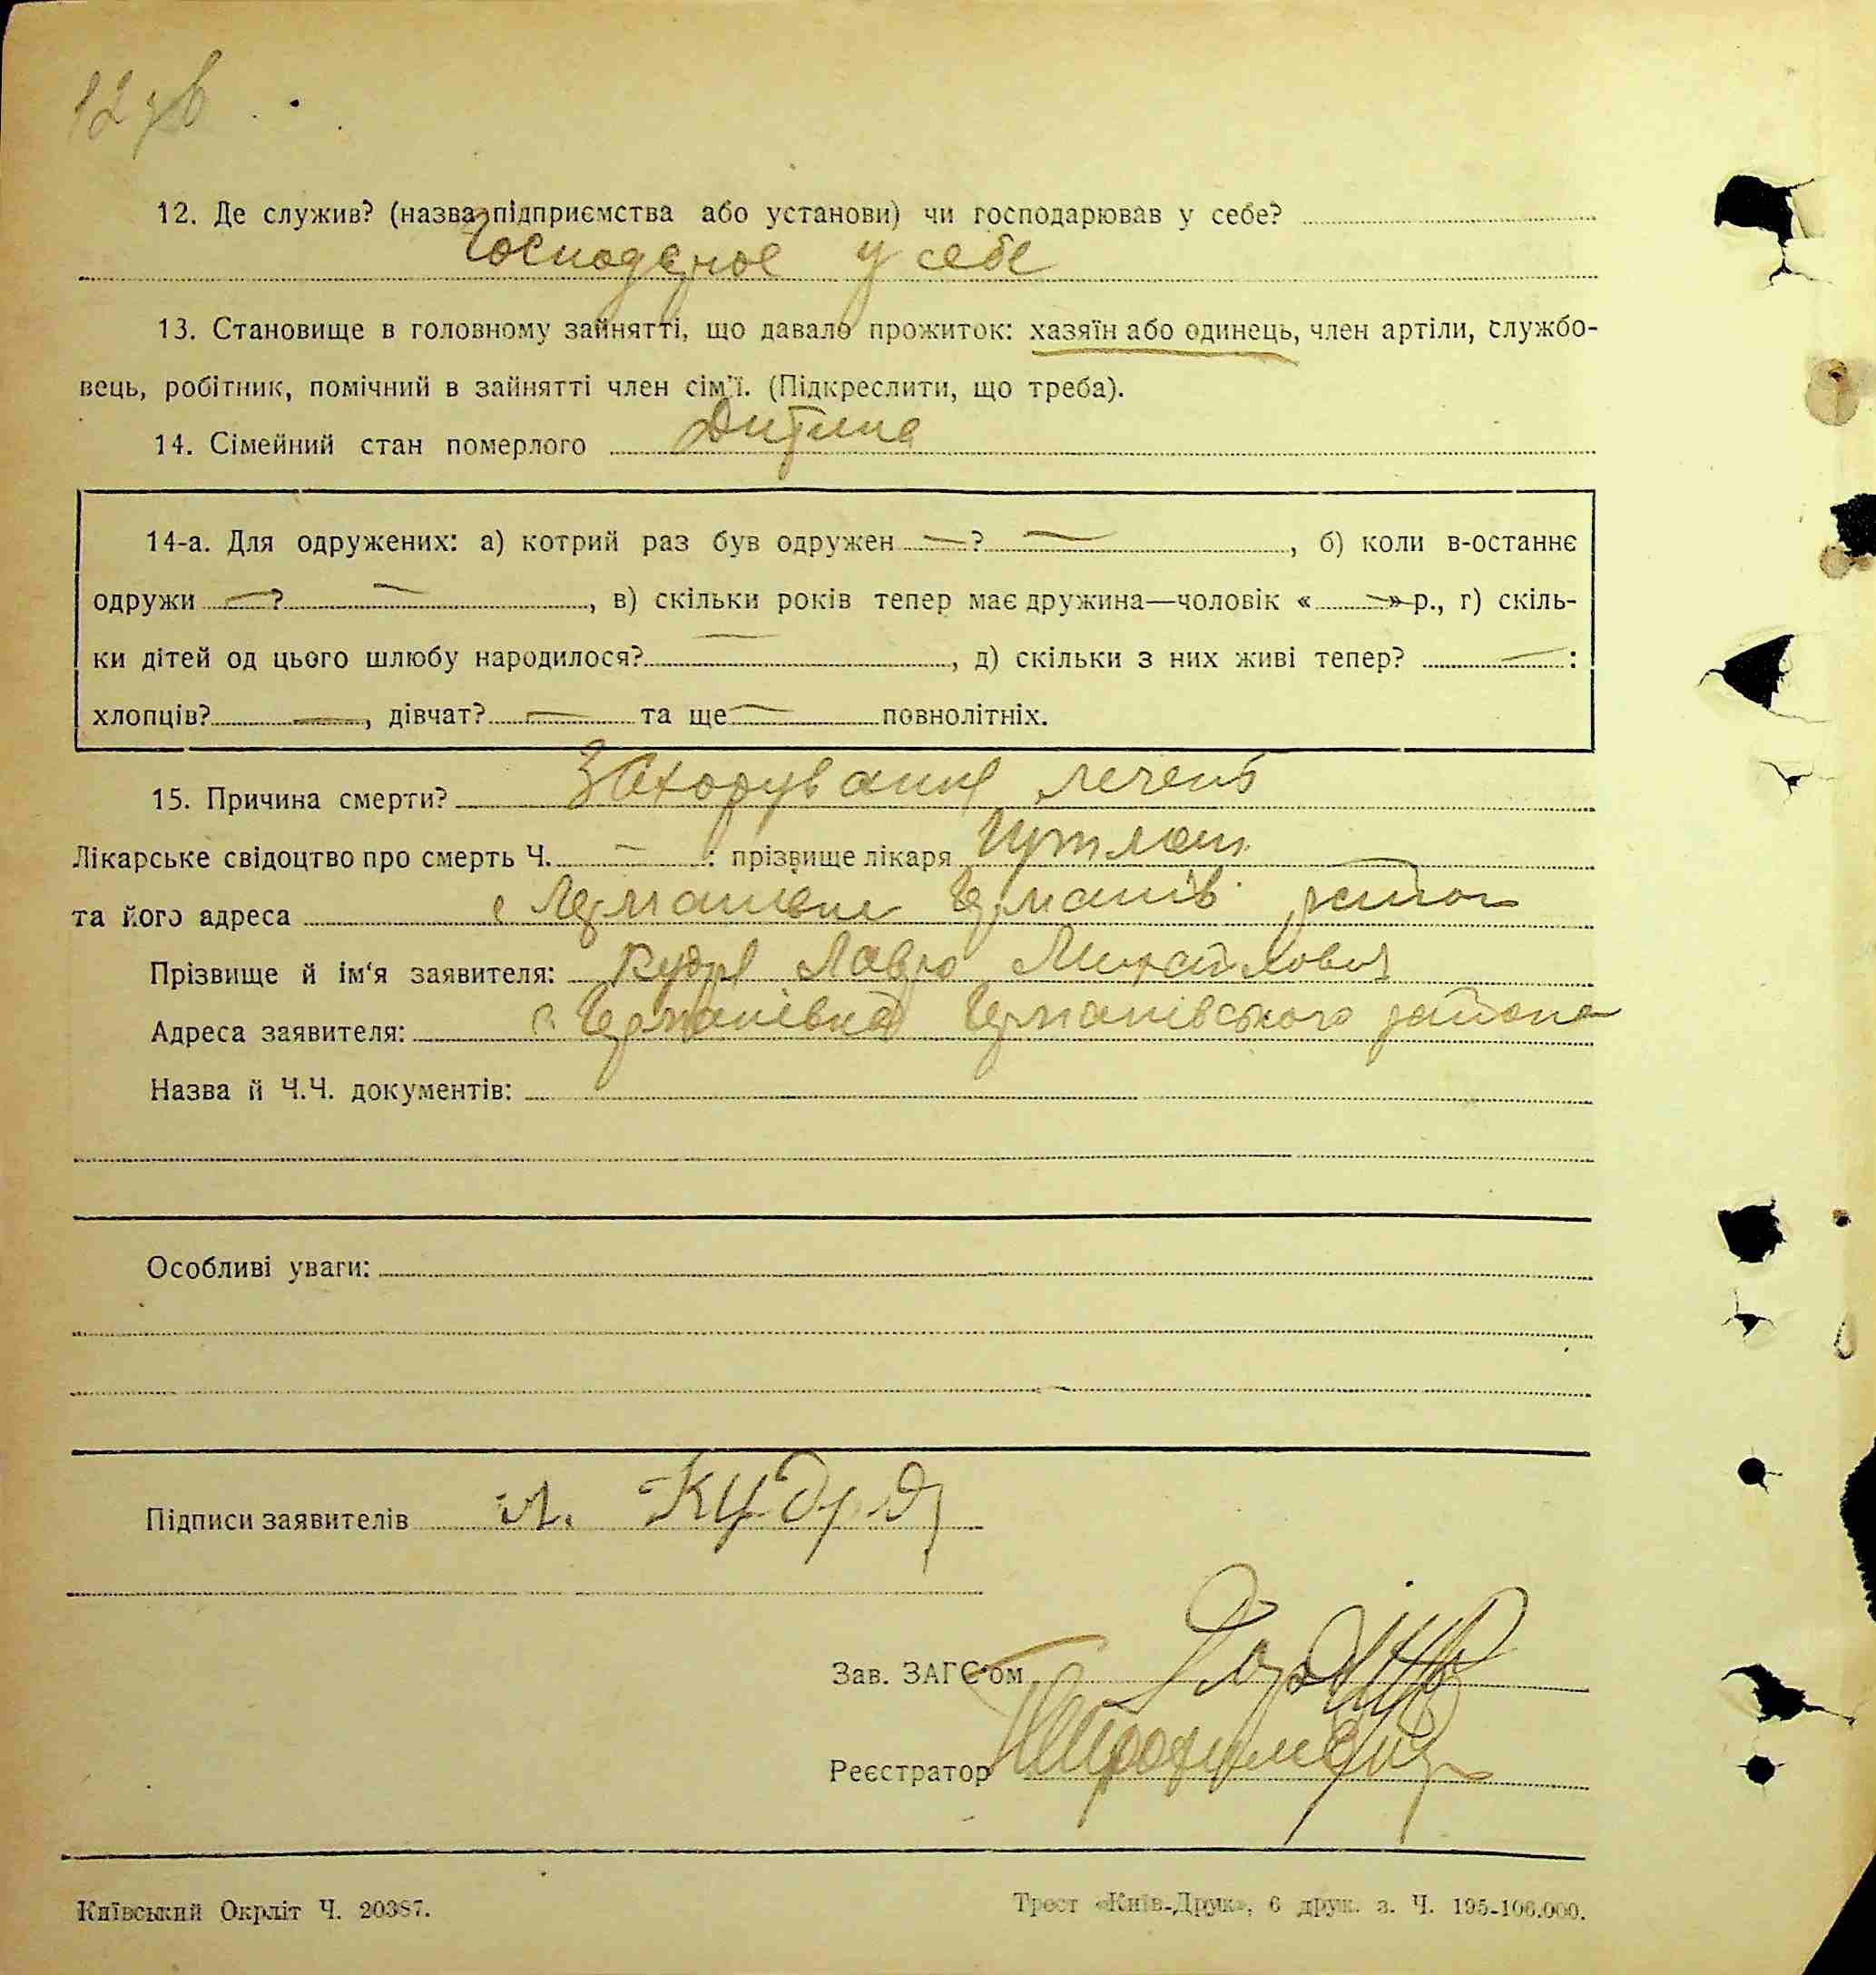 12 зв
12. Де служив? (назва підприємства або установи) чи господарював у себе?
Господарює у себе
13. Становище в головному зайнятті, що давало прожиток: хазяїн або одинець, член артіли, службо-
вець, робітник, помічний в зайнятті член сім'ї. (Підкреслити, що треба).
14. Сімейний стан померлого Дитина
14-а. Для одружених: а) котрий раз був одружен — ? — , б) коли в-останнє
одружи — ? — , в) скільки років тепер має дружина—чоловік « — » р., г) скіль-
ки дітей од цього шлюбу народилося? — , д) скільки з них живі тепер? — :
хлопців? — , дівчат? — та ще — повнолітніх.
15. Причина смерти? Захорування печені
Лікарське свідоцтво про смерть Ч. — : прізвище лікаря
та його адреса с Германівка Германів район
Прізвище й ім'я заявителя: Кудря Лавро Михайлович
Адреса заявителя: с. Германівка Германівського района
Назва й Ч.Ч. документів:
Особливі уваги:
Підписи заявителів Л. Кудря
Зав. ЗАГС'ом
Реєстратор
Київський Окрліт Ч. 20387.
Трест «Київ-Друк», 6 друк. з. Ч. 195-100.000.